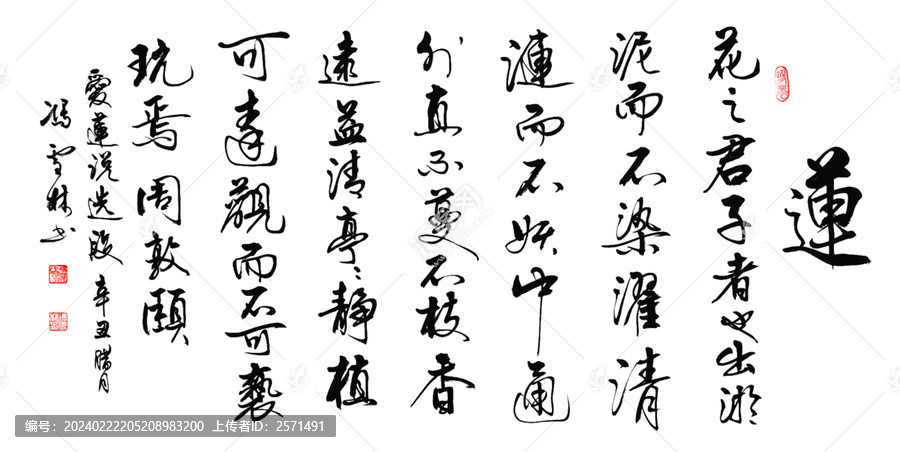 蓮
花之君子者也出淤
泥而不染濯清
漣而不妖中通
外直不蔓不枝香
遠益清亭亭靜植
可遠觀而不可褻
玩焉周敦頤
愛蓮说選段 辛丑腊月
馮雪林书
编号：20240222205208983200 上传者ID：2571491